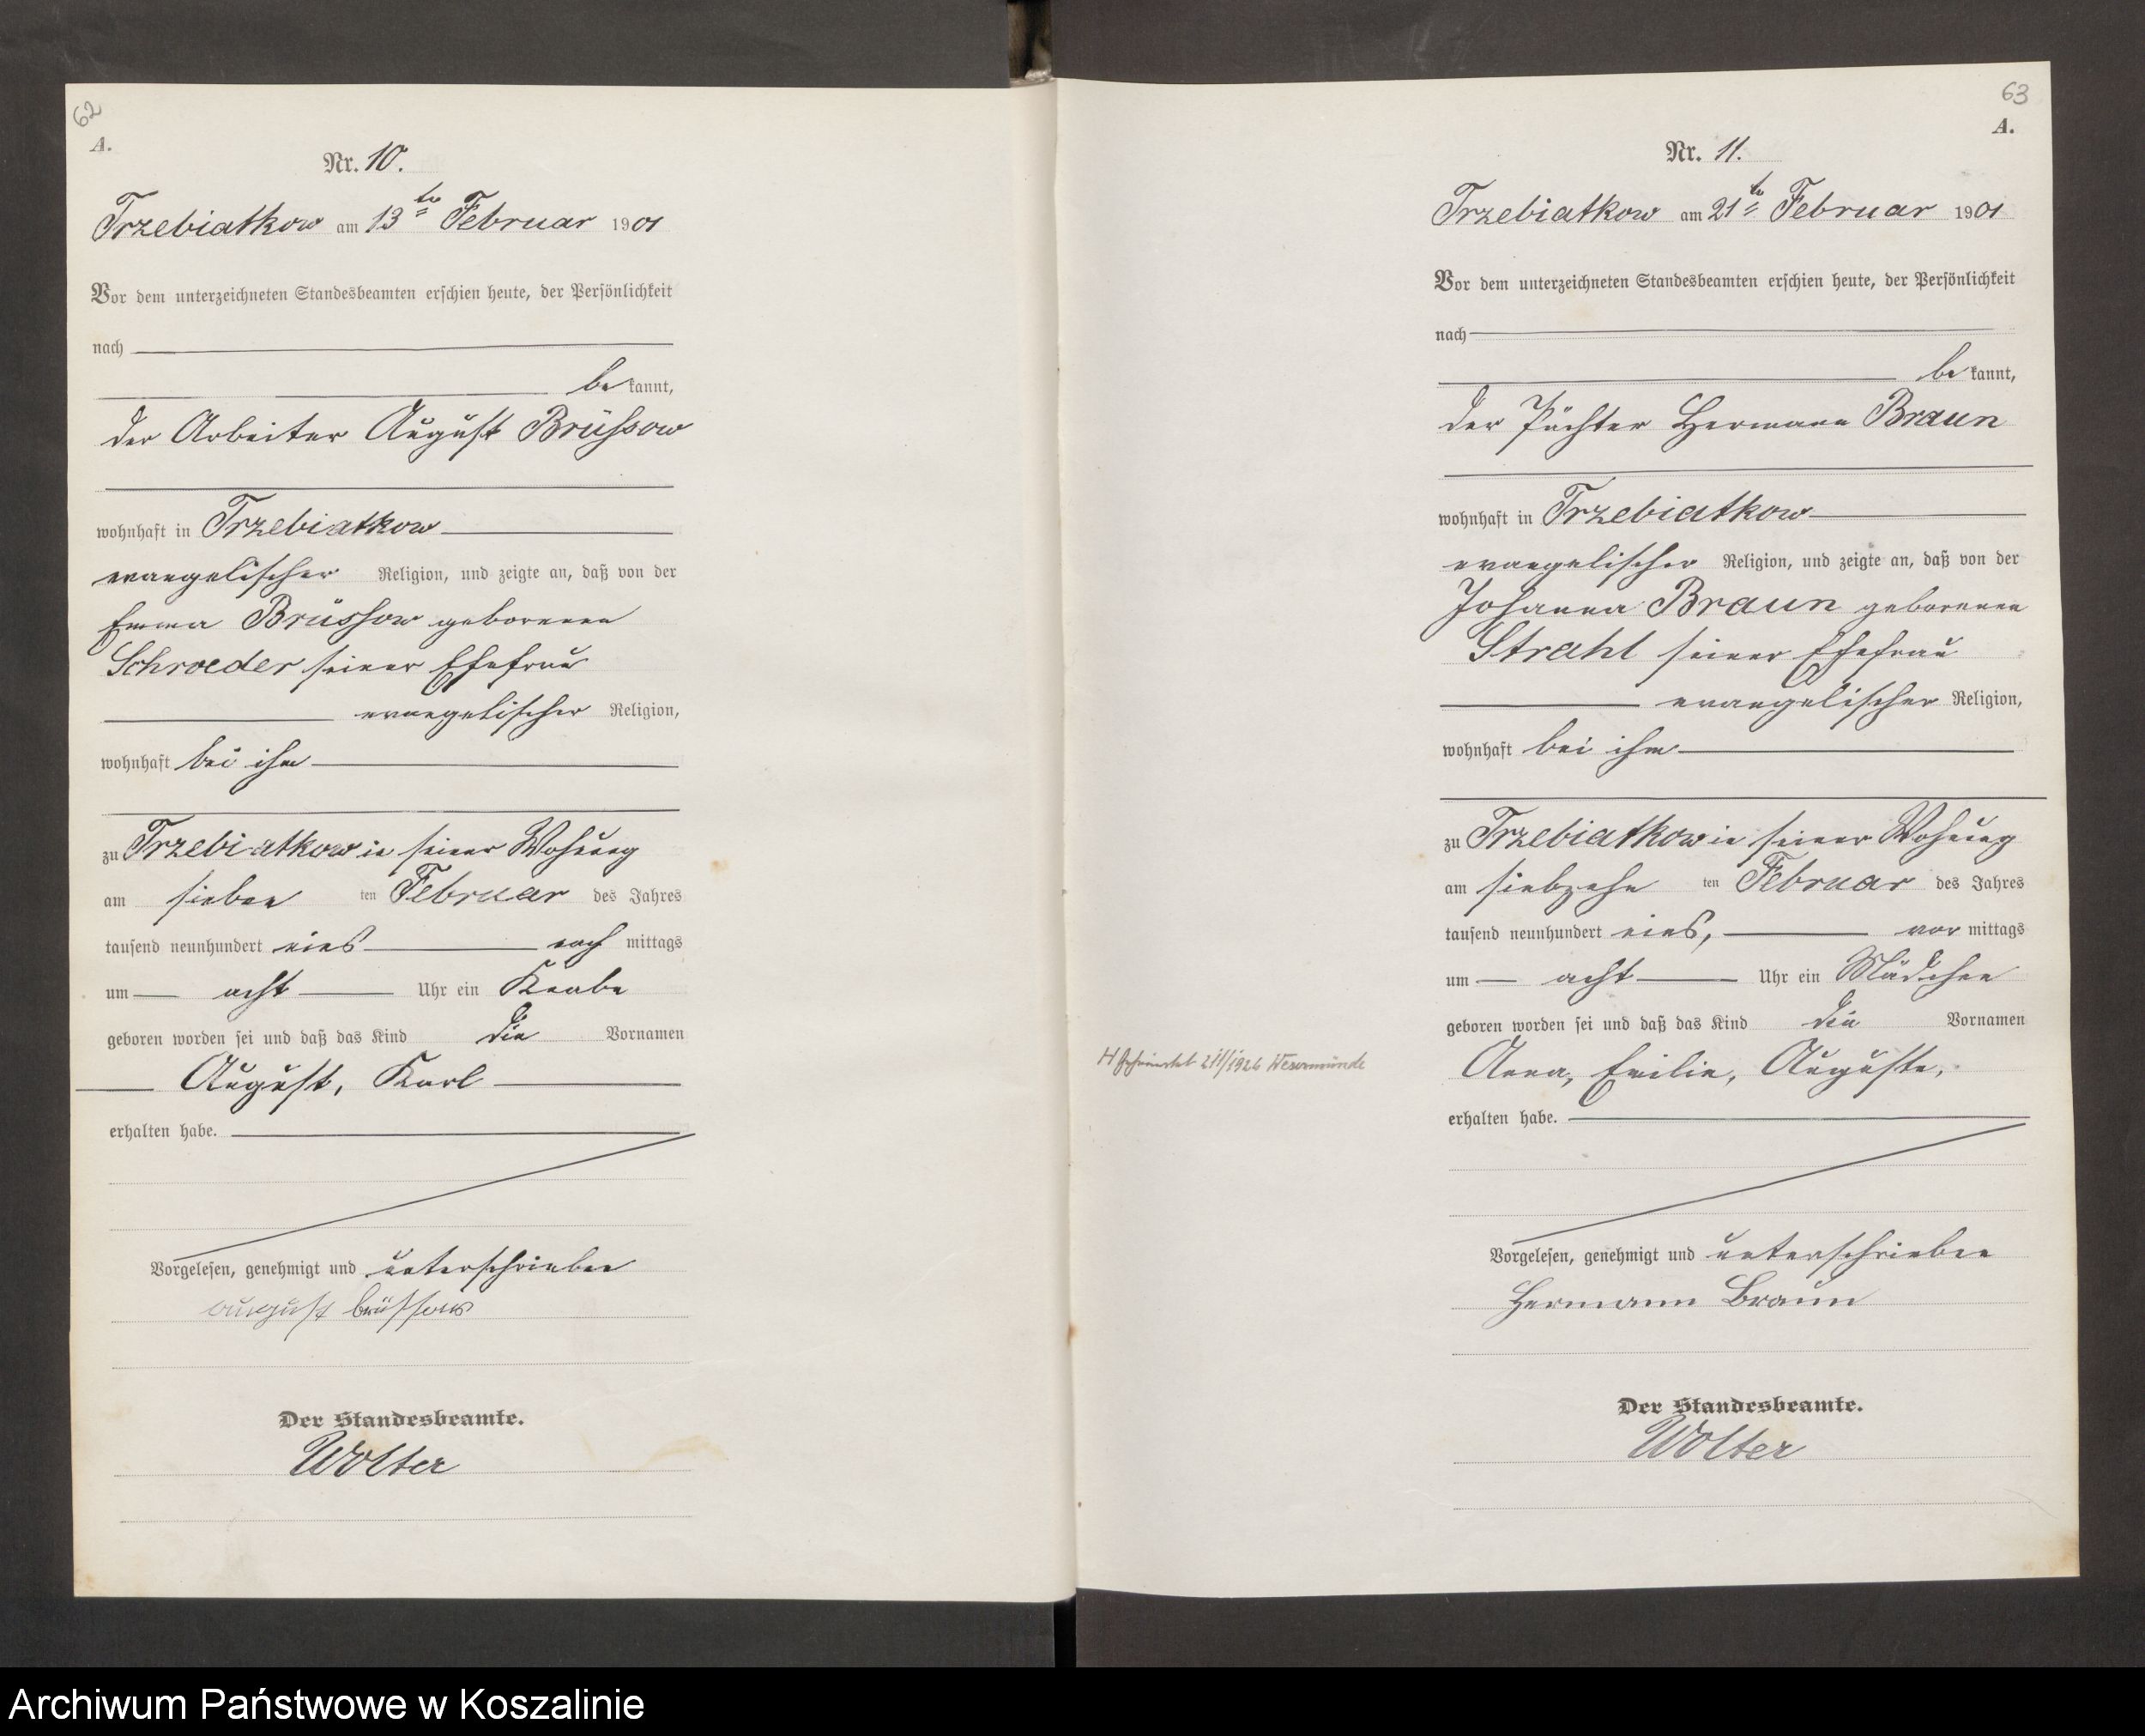 62
A.
Nr. 10.
Trzebiatkow am 13ten Februar 1901
Vor dem unterzeichneten Standesbeamten erschien heute, der Persönlichkeit
nach
bekannt,
der Arbeiter August Brüssow
wohnhaft in Trzebiatkow
evangelischer Religion, und zeigte an, daß von der
Emma Brüssow geborenen
Schroeder seiner Ehefrau
evangelischer Religion,
wohnhaft bei ihm
zu Trzebiatkow in seiner Wohnung
am sieben ten Februar des Jahres
tausend neunhundert eins nach mittags
um acht Uhr ein Knabe
geboren worden sei und daß das Kind die Vornamen
August, Karl
erhalten habe.
Vorgelesen, genehmigt und unterschrieben
august brüssow
Der Standesbeamte.
Wolter
63
A.
Nr. 11.
Trzebiatkow am 21ten Februar 1901
Vor dem unterzeichneten Standesbeamten erschien heute, der Persönlichkeit
nach
bekannt,
der Pächter Hermann Braun
wohnhaft in Trzebiatkow
evangelischer Religion, und zeigte an, daß von der
Johanna Braun geborenen
Strahl seiner Ehefrau
evangelischer Religion,
wohnhaft bei ihm
zu Trzebiatkow in seiner Wohnung
am siebzehn ten Februar des Jahres
tausend neunhundert eins, vor mittags
um acht Uhr ein Mädchen
geboren worden sei und daß das Kind die Vornamen
1926 Wesermünde
Anna, Emilie, Auguste,
erhalten habe.
Vorgelesen, genehmigt und unterschrieben
Hermann Braun
Der Standesbeamte.
Wolter
Archiwum Państwowe w Koszalinie